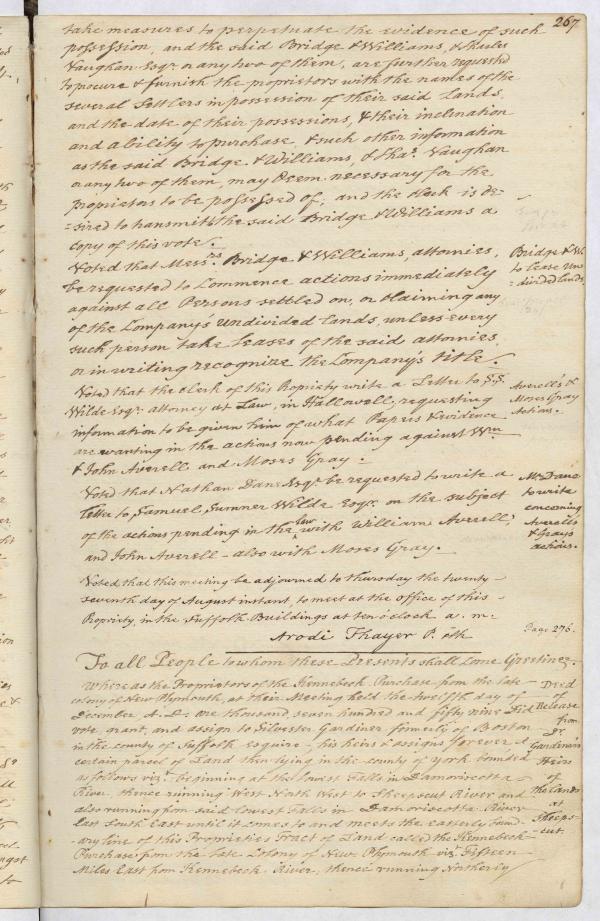 267
take measures to perpetuate the evidence of such
possession, and the said Bridge & Williams, & Charles
Vaughan Esqr. or any two of them, are further requested
to procure & furnish the proprietors with the names of the
several Settlers in possession of their said Lands,
and the date of their possessions, & their inclination
and ability to purchase, & such other information
as the said Bridge & Williams, & Chas. Vaughan
or any two of them, may Deem necessary for the
Proprietors to be possessed of; and the Clerk is de-
=sired to transmit the said Bridge & Williams a
copy of this vote.
Voted that Messrs. Bridge & Williams, attornies,
be requested to Commence actions immediately
against all Persons settled on, or Claiming any
of the Company's undivided lands, unless every
such person take Leases of the said attornies,
or in writing recognize the Company's title.
Bridge & W.
to lease un
=divided lands
Voted that the Clerk of this Propriety write a Letter to S. S.
Wilde Esqr. attorney at Law, in Hallowell, requesting
information to be given him of what Papers & evidence
are wanting in the actions now pending against Wm
& John Averell and Moses Gray.
Averell's &
Moses Gray
Actions.
Voted that Nathan Dane Esqr. be requested to write a
letter to Samuel Sumner Wilde Esqr. on the subject
of the actions pending in the law with William Averell,
and John Averell - also with Moses Gray.
Mr. Dane
to write
concerning
Averell's
& Gray's
actions.
Voted that this meeting be adjourned to thursday the twenty-
seventh day of August instant, to meet at the office of this
Propriety, in the Suffolk Buildings at ten o'clock a. m.
Arodi Thayer P. Clk
Page 276.
To all People to whom these Presents shall Come Greeting.
Whereas the Proprietors of the Kennebeck Purchase from the late
colony of New Plymouth, at their Meeting held the twelfth day of
December A. D. one thousand, seven hundred and fifty nine Did
vote, grant, and assign to Silvester Gardiner formerly of Boston
in the county of Suffolk esquire, his heirs & assigns forever a
certain parcel of Land then lying in the county of York bounded
as follows vizt. beginning at the lowest Falls in Damoriscotta
River, thence running West North West to Sheepscut River and
also running from said lowest Falls in Damoriscotta River
East South East until it comes to and meets the easterly bound-
ary line of this Proprieties Tract of Land called the Kennebeck
Purchase from the late Colony of New Plymouth vizt. Fifteen
Miles East from Kennebeck River, thence running Northerly
Deed
of
Release
from
Dr.
Gardiner's
Heirs
of
the Lands
at
Sheeps-
cut.